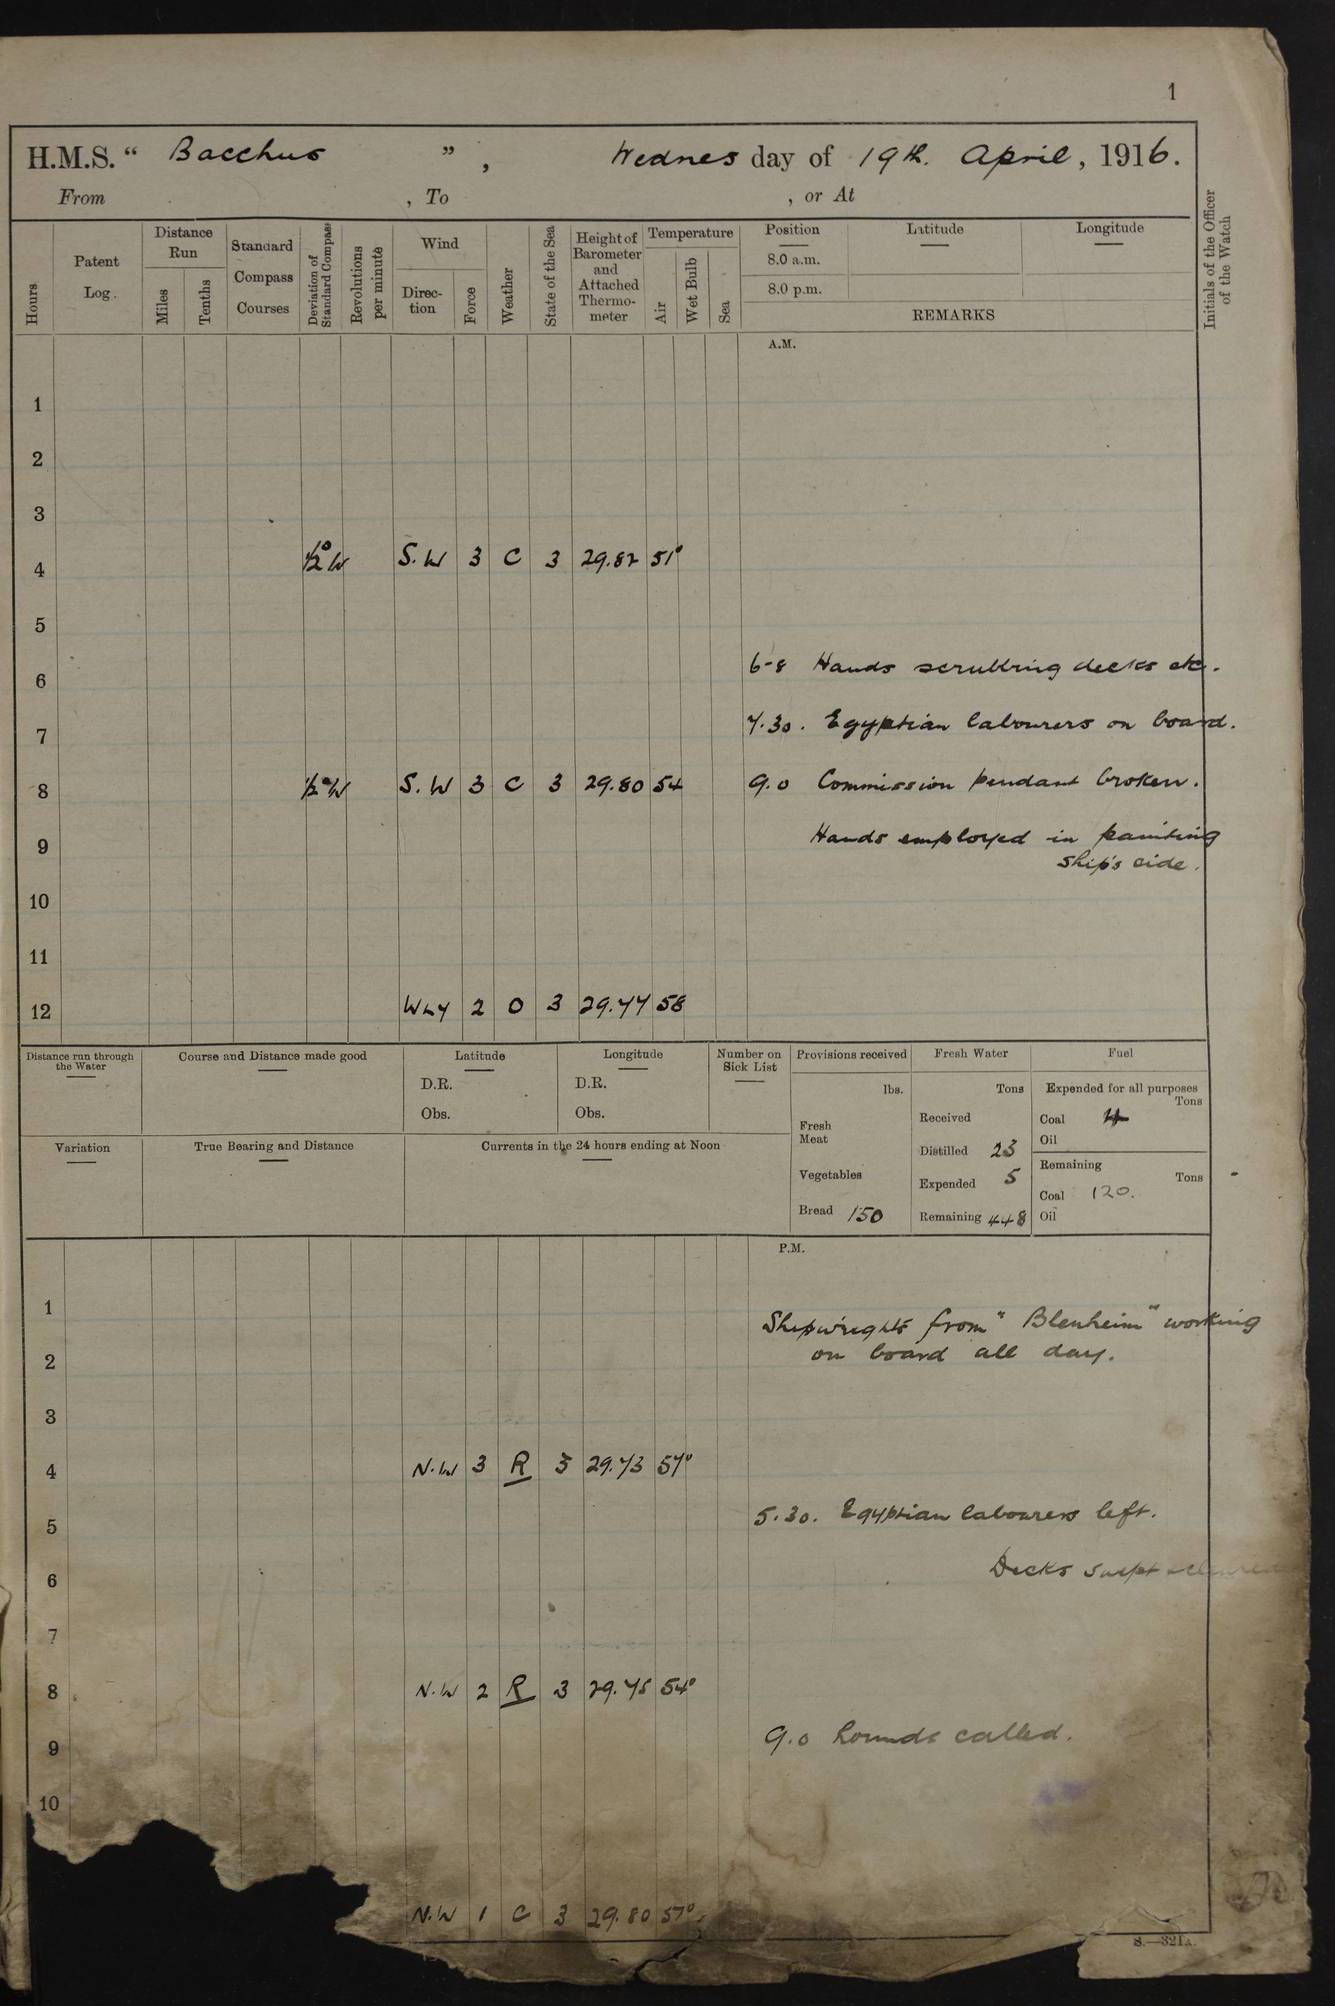 1
H.M.S. “ Bacchus ” , Wednesday of 19th. April, 1916.
From , To , or At
Hours
Patent Log.
Distance Run
Miles
Tenths
Standard Compass Courses
Deviation of Standard Compass
Revolutions per minute
Wind
Direction
Force
Weather
State of the Sea
Height of Barometer and Attached Thermometer
Temperature
Air
Wet Bulb
Sea
Position
8.0 a.m.
8.0 p.m.
Latitude
Longitude
REMARKS
Initials of the Officer of the Watch
A.M.
1
2
3
4 ½° W S.W 3 C 3 29.82 51°
5
6 6-8 Hands scrubbing decks etc.
7 7.30. Egyptian labourers on board.
8 ½° W S.W 3 C 3 29.80 54 9.0 Commission pendant broken.
9 Hands employed in painting
ship's side.
10
11
12 WLY 2 O 3 29.77 58
Distance run through the Water
Course and Distance made good
Latitude
D.R.
Obs.
Longitude
D.R.
Obs.
Number on Sick List
Variation
True Bearing and Distance
Currents in the 24 hours ending at Noon
Provisions received
lbs.
Fresh Meat
Vegetables
Bread 150
Fresh Water
Tons
Received
Distilled 23
Expended 5
Remaining 448
Fuel
Expended for all purposes
Tons
Coal 4
Oil
Remaining
Tons
Coal 120.
Oil
P.M.
1 Shipwrights from "Blenheim" working
2 on board all day.
3
4 N.W 3 R 3 29.73 57°
5 5.30. Egyptian labourers left.
6 Decks swept
7
8 N.W 2 R 3 29.75 54°
9 9.0 Rounds called.
10
N.W 1 C 3 29.80 57°
S.—321A.